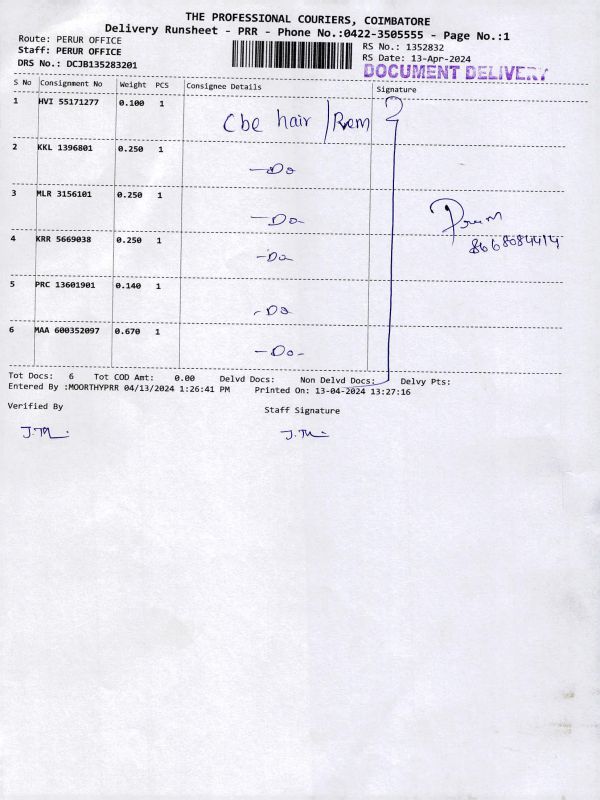 THE PROFESSIONAL COURIERS, COIMBATORE
Delivery Runsheet - PRR - Phone No.:0422-3505555 - Page No.:1
Route: PERUR OFFICE
RS No.: 1352832
Staff: PERUR OFFICE
RS Date: 13-Apr-2024
DRS No.: DCJB135283201
DOCUMENT DELIVERY
S No Consignment No Weight PCS Consignee Details Signature
1 HVI 55171277 0.100 1 Cbe hair /
2 KKL 1396801 0.250 1 -Do
3 MLR 3156101 0.250 1 -Do-
4 KRR 5669038 0.250 1 -Do
8668084414
5 PRC 13601901 0.140 1 -Do
6 MAA 600352097 0.670 1 -Do-
Tot Docs: 6 Tot COD Amt: 0.00 Delvd Docs: Non Delvd Docs: Delvy Pts:
Entered By :MOORTHYPRR 04/13/2024 1:26:41 PM Printed On: 13-04-2024 13:27:16
Verified By Staff Signature